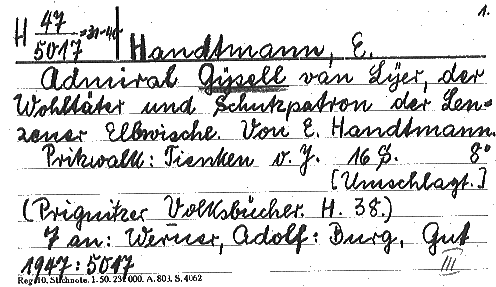 1.
H 47
5017 =31-40
Handtmann, E.
Admiral Gijsell van Lÿer, der
Wohltäter und Schutzpatron der Len=
zener Elbwische. Von E. Handtmann.
Prikwalk: Tienken o. J. 16 S. 8°
[Umschlagt.]
(Prignitzer Volksbücher. H. 38.)
7 an: Werner, Adolf: Burg, Gut
1947: 5017
III
Reg. 10. Stichnote. 1. 50. 231 000. A. 803. S. 4062